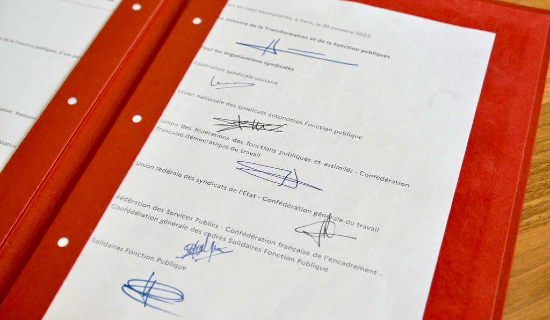 en sept exemplaires, à Paris, le 20 octobre 2023.
ministre de la Transformation et de la Fonction publiques
les organisations syndicales
Fédération syndicale unitaire
Union nationale des syndicats autonomes Fonction publique
Union des fédérations des fonctions publiques et assimilés - Confédération
française démocratique du travail
Union fédérale des syndicats de l'État - Confédération générale du travail
Fédération des Services Publics - Confédération française de l'encadrement -
Confédération générale des cadres Solidaires Fonction Publique
Solidaires Fonction Publique